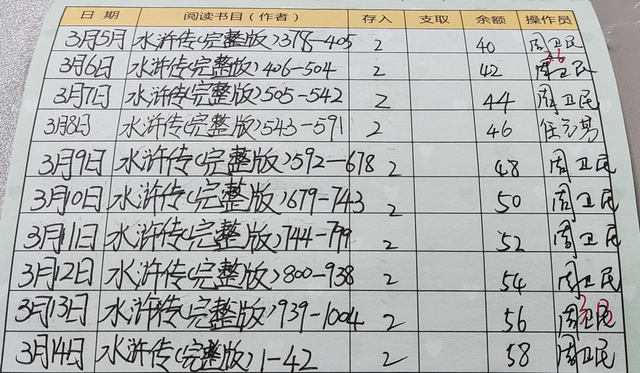 日期 阅读书目(作者) 存入 支取 余额 操作员
3月5日 水浒传(完整版)378-405 2 40 周卫民
3月6日 水浒传(完整版)406-504 2 42 周卫民
3月7日 水浒传(完整版)505-542 2 44 周卫民
3月8日 水浒传(完整版)543-591 2 46
3月9日 水浒传(完整版)592-678 2 48 周卫民
3月10日 水浒传(完整版)679-743 2 50 周卫民
3月11日 水浒传(完整版)744-799 2 52 周卫民
3月12日 水浒传(完整版)800-938 2 54 周卫民
3月13日 水浒传(完整版)939-1004 2 56 周卫民
3月14日 水浒传(完整版)1-42 2 58 周卫民